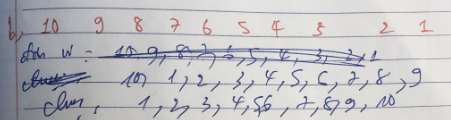 b, 10 9 8 7 6 5 4 3 2 1
w : 10, 9, 8, 7, 6, 5, 4, 3, 2, 1
10, 1, 2, 3, 4, 5, 6, 7, 8, 9
1, 2, 3, 4, 5 6, 7, 8, 9, 10